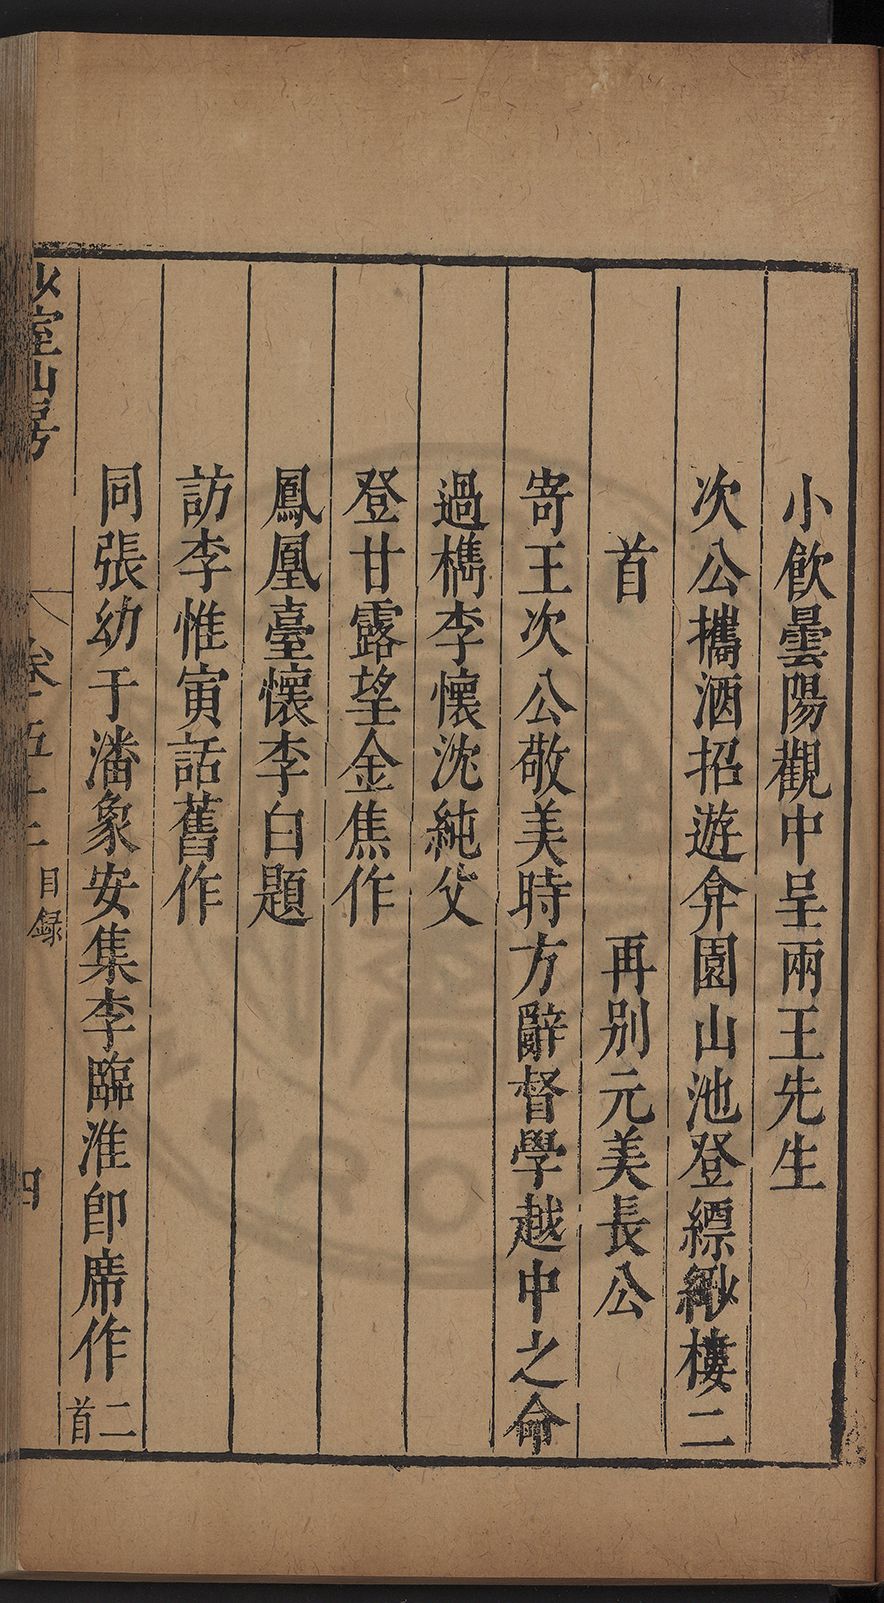 小飲曇陽觀中呈兩王先生
次公攜酒招遊弇園山池登縹緲樓二
首　再別元美長公
寄王次公敬美時方辭督學越中之命
過檇李懷沈純父
登甘露望金焦作
鳳凰臺懷李白題
訪李惟寅話舊作
同張幼于潘象安集李臨淮卽席作二首
少室山房
卷五十二
目録
四